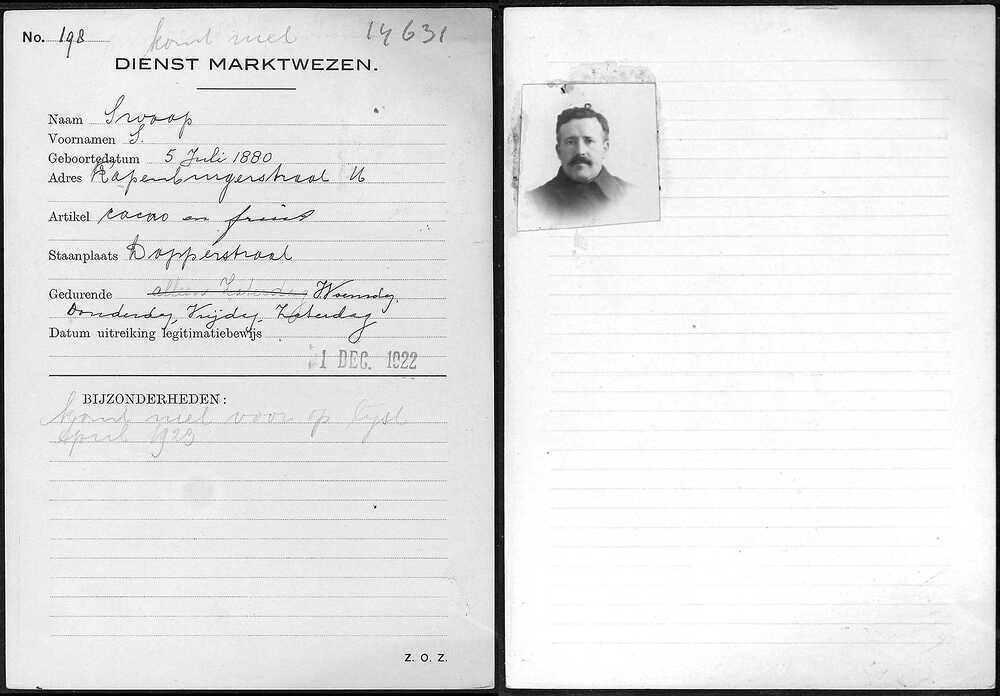 No. 198 komt niet 14631
DIENST MARKTWEZEN.
Naam Swaap
Voornamen S.
Geboortedatum 5 Juli 1880
Adres Rapenburgerstraat 16
Artikel cacao en fruit
Staanplaats Dapperstraat
Gedurende alleen Zaterdag Woensdag,
Donderdag, Vrijdag, Zaterdag
Datum uitreiking legitimatiebewijs
1 DEC. 1922
BIJZONDERHEDEN:
komt niet voor op lijst
April 1923
Z. O. Z.